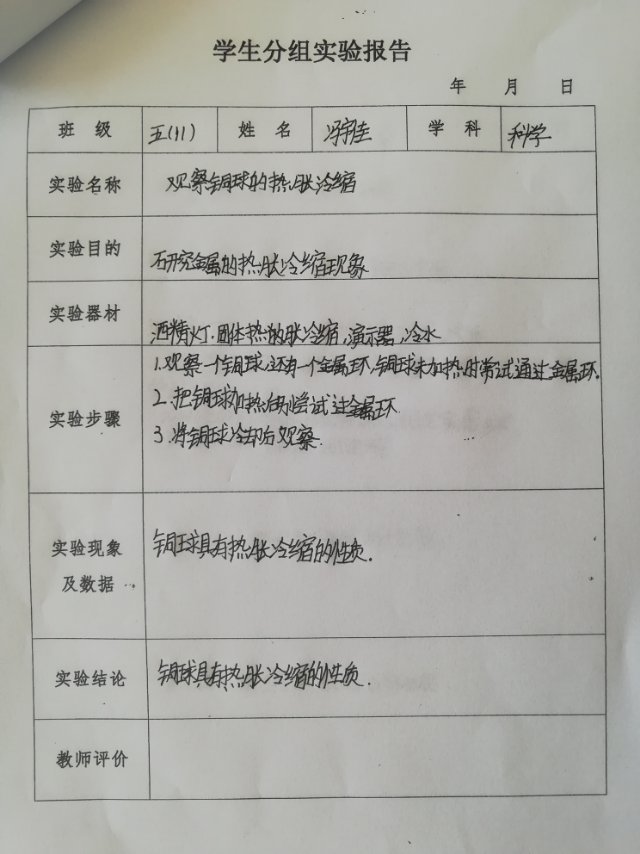 学生分组实验报告
年 月 日
班 级 五(11) 姓 名 冯宇佳 学 科 科学
实验名称 观察铜球的热胀冷缩
实验目的 研究金属的热胀冷缩现象
实验器材 酒精灯.固体热的胀冷缩,演示器,冷水
实验步骤
1.观察一个铜球,还有一个金属环,铜球未加热时尝试通过金属环.
2.把铜球加热后尝试过金属环
3.将铜球冷却后观察.
实验现象
及数据
铜球具有热胀冷缩的性质.
实验结论 铜球具有热胀冷缩的性质.
教师评价